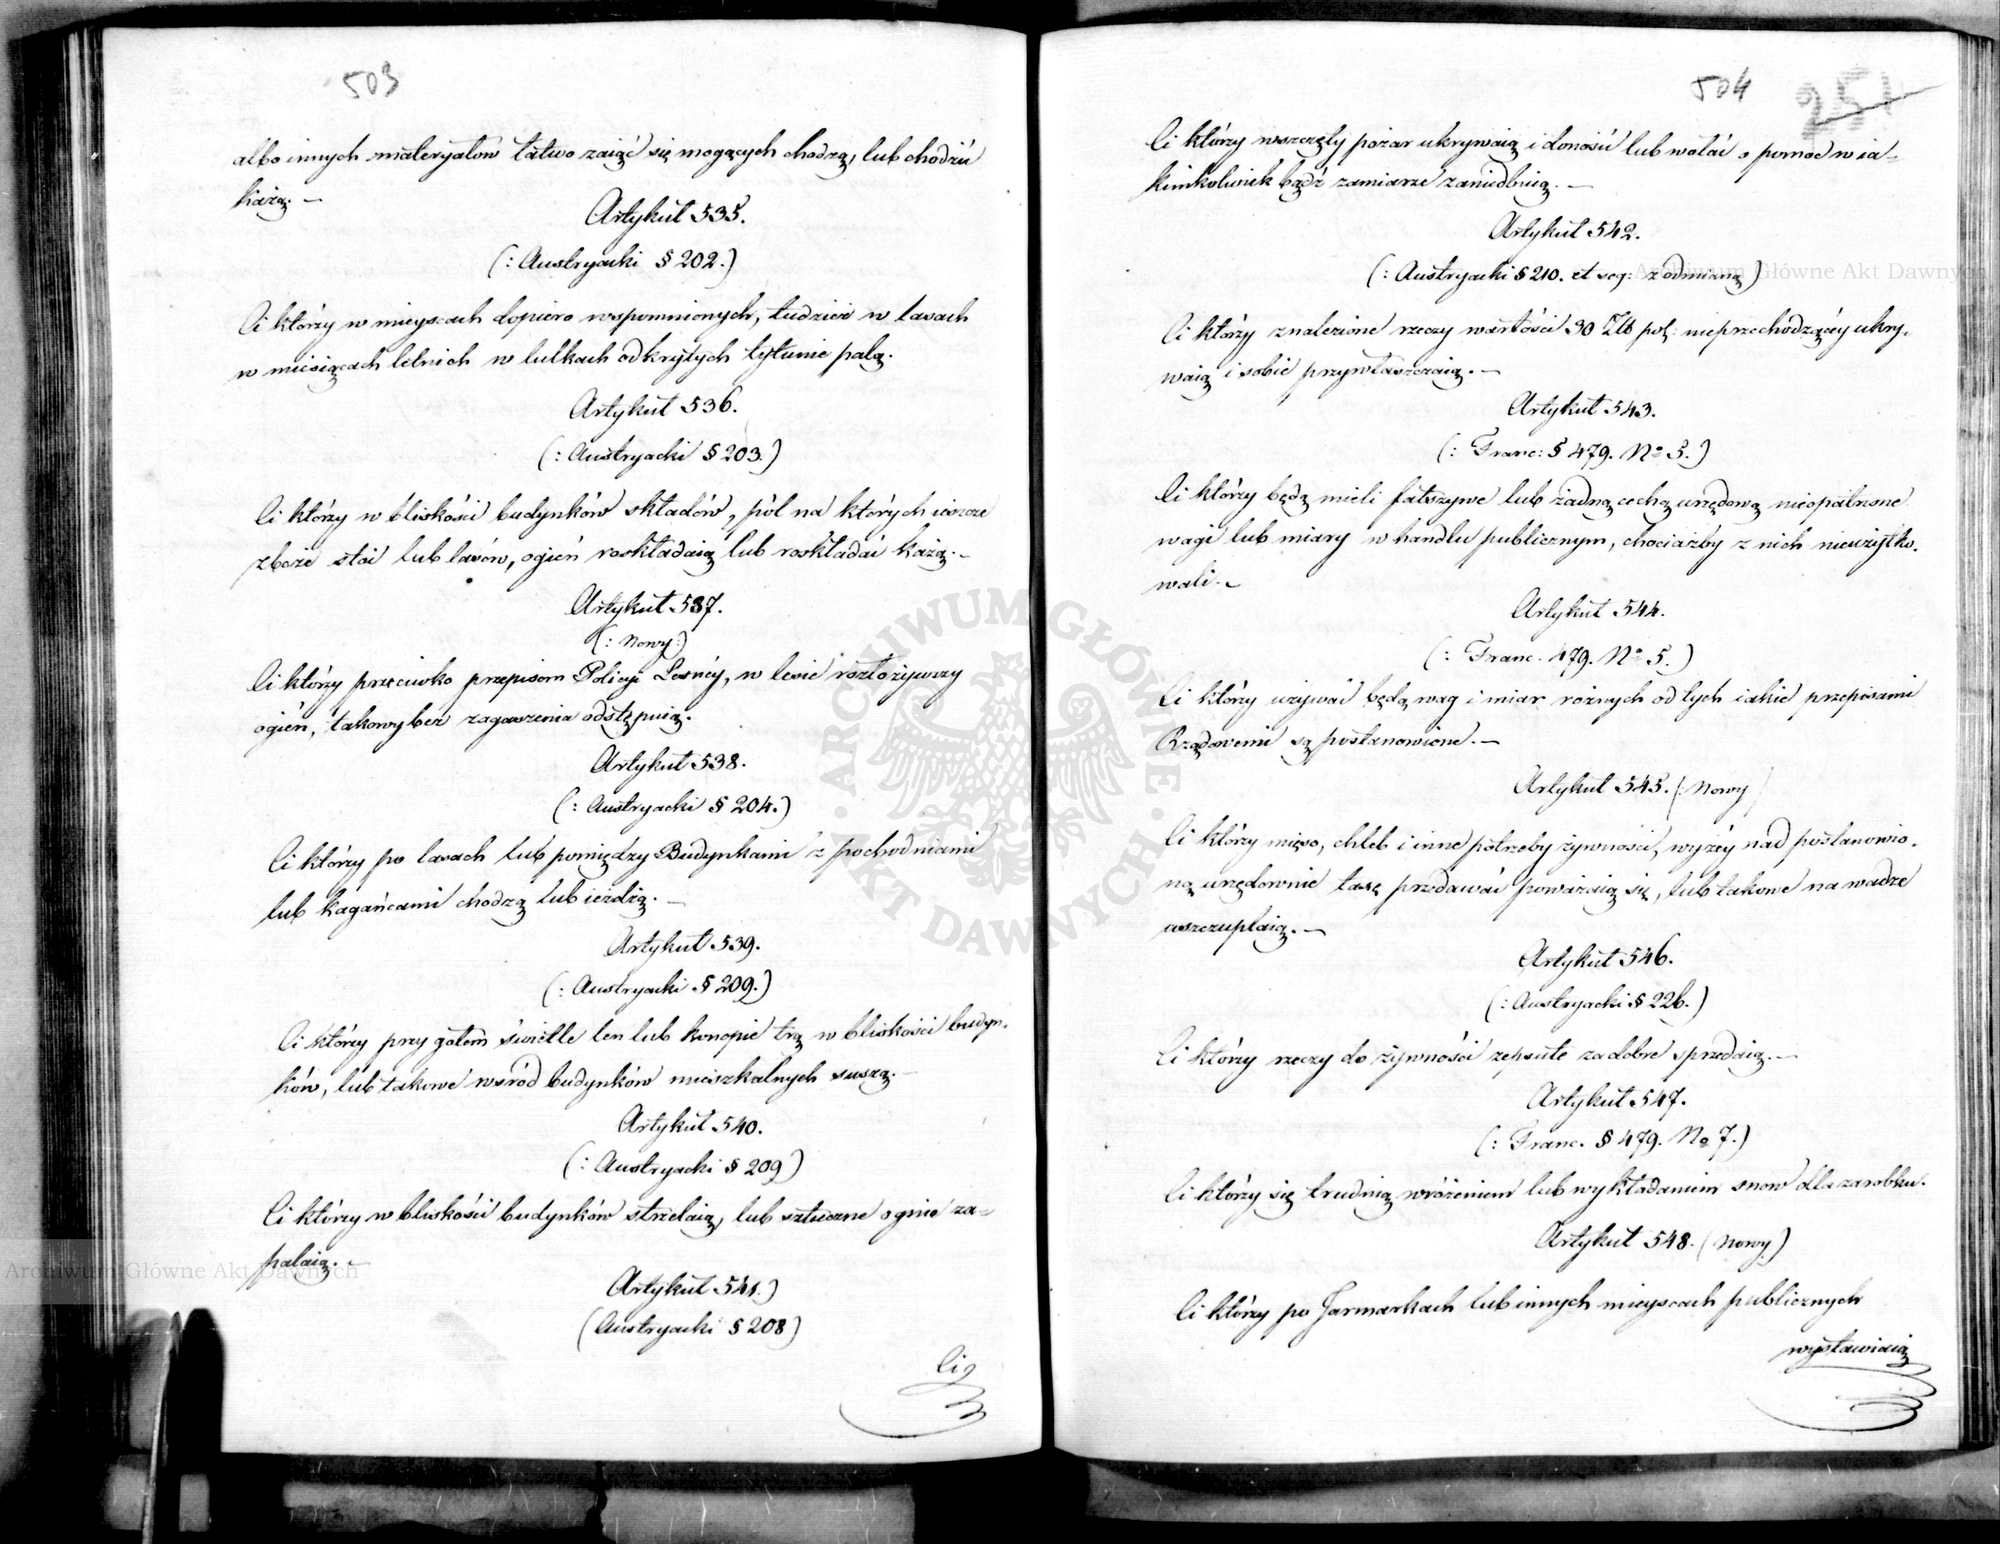 503
albo innych materyałów łatwo zaiąć się mogących chodzą, lub chodzić
każą. —
Artykuł 535.
(: Austryacki § 202.)
Ci którzy w mieyscach dopiero wspomnionych, tudzież w lasach
w miesiącach letnich w lulkach odkrytych tytunie palą.
Artykuł 536.
(: Austryacki § 203.)
Ci którzy w bliskości budynków składów, pól na których ieszcze
zboże stoi lub lasów, ogień roskładaią lub roskładać każą. –
Artykuł 537.
(: Nowy :)
Ci którzy przeciwko przepisom Policyi Leśnéy, w lesie rozłożywszy
ogień, takowy bez zagaszenia odstępuią.
Artykuł 538.
(: Austryacki § 204.)
Ci którzy po lasach lub pomiędzy Budynkami z pochodniami
lub kagańcami chodzą lub ieżdżą. —
Artykuł 539.
(: Austryacki § 209.)
Ci którzy przy gołem świetle len lub konopie trą w bliskości budyn-
ków, lub takowe wśród budynków mieszkalnych suszą. –
Artykuł 540.
(: Austryacki § 209)
Ci którzy w bliskości budynków strzelaią, lub sztuczne ognie za=
palaią. –
Artykuł 541.)
(Austryacki § 208)
Ci
504
251
Ci którzy wszczęty pożar ukrywaią i donosić lub wołać o pomoc w ia=
kimkolwiek bądź zamiarze zaniedbuią. —
Artykuł 542.
(: Austryacki § 210. et seq: z odmianą)
Ci którzy znalezione rzeczy wartości 30 Złt pol: nieprzechodzącéy ukry-
waią i sobie przywłaszczaią. —
Artykuł 543.
(: Franc: § 479. No 5.)
Ci którzy będą mieli fałszywe lub żadną cechą urzędową nieopatrzone
wagi lub miary w handlu publicznym, chociażby z nich nieużytko-
wali. –
Artykuł 544.
(: Franc. 479. No 5.)
Ci którzy używać będą wag i miar rożnych od tych iakie przepisami
Rządowemi są postanowione. —
Artykuł 545. (: Nowy)
Ci którzy mięso, chleb i inne potrzeby żywności, wyżéy nad postanowio-
ną urzędownie taxę przedawać poważaią się, lub takowe na wadze
uszczuplaią. —
Artykuł 546.
(: Austryacki § 226.)
Ci którzy rzeczy do żywności zepsute za dobre sprzedaią. —
Artykuł 547.
(: Franc. § 479. No 7.)
Ci którzy się trudnią wróżeniem lub wykładaniem snow dla zarobku.
Artykuł 548. (Nowy)
Ci którzy po Jarmarkach lub innych mieyscach publicznych
wystawiaią
Archiwum Główne Akt Dawnych
Archiwum Główne Akt Dawnych
ARCHIWUM GŁÓWNE · AKT DAWNYCH · W